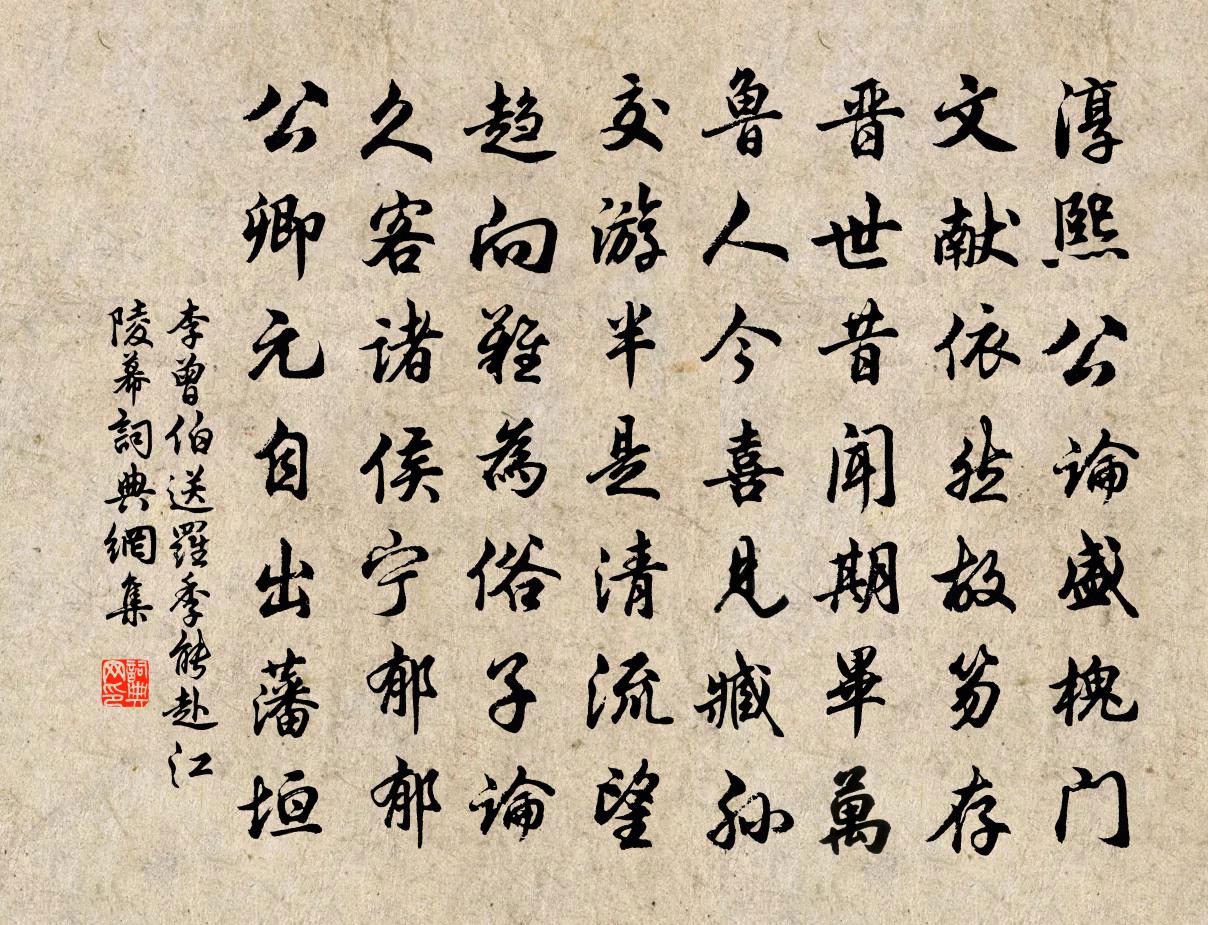 淳熙公論盛槐门
文献依然故笏存
晋世昔闻期畢萬
魯人今喜見臧孫
交游半是清流望
趋向難為俗子論
久客诸侯宁郁郁
公卿元自出藩垣
李曾伯送羅季能赴江
陵幕詞典網集
詞典网印